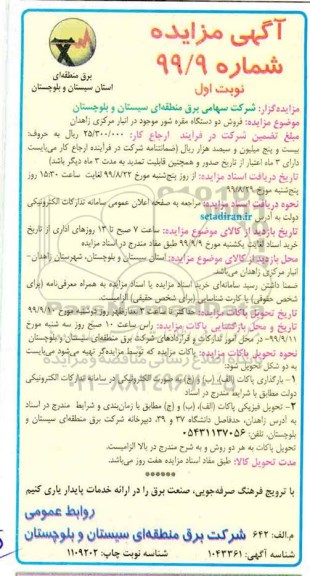 آگهی مزایده
شماره ۹۹/۹
نوبت اول
برق منطقه‌ای
استان سیستان و بلوچستان
مزایده‌گزار: شرکت سهامی برق منطقه‌ای سیستان و بلوچستان
موضوع مزایده: فروش دو دستگاه مقره شور موجود در انبار مرکزی زاهدان
مبلغ تضمین شرکت در فرایند ارجاع کار: ۲۵/۳۰۰/۰۰۰ ریال به حروف:
بیست و پنج میلیون و سیصد هزار ریال (ضمانتنامه شرکت در فرآیند ارجاع کار می‌بایست
دارای ۳ ماه اعتبار از تاریخ صدور و همچنین قابلیت تمدید به مدت ۳ ماه دیگر باشد)
تاریخ دریافت اسناد مزایده: از روز پنجشنبه مورخ ۹۹/۸/۲۲ لغایت ساعت ۱۵:۳۰ روز
پنج‌شنبه مورخ ۹۹/۸/۲۹
نحوه دریافت اسناد مزایده: مراجعه به صفحه اعلان عمومی سامانه تدارکات الکترونیکی
دولت به آدرس setadiran.ir
تاریخ بازدید از کالای موضوع مزایده: ساعت ۷ صبح تا ۱۳ روزهای اداری از تاریخ
خرید اسناد لغایت یکشنبه مورخ ۹۹/۹/۹ طبق مفاد مندرج در اسناد مزایده
محل بازدید کالای موضوع مزایده: استان سیستان و بلوچستان، شهرستان زاهدان-
انبار مرکزی زاهدان می‌باشد.
ضمنا داشتن رسید سامانه‌ای خرید اسناد مزایده یا اسناد مزایده به همراه معرفی‌نامه (برای
شخص حقوقی) یا کارت شناسایی (برای شخص حقیقی) الزامیست.
تاریخ تحویل پاکات مزایده: حداکثر تا ساعت ۲ بعدازظهر روز دوشنبه مورخ ۹۹/۹/۱۰
تاریخ و محل بازگشایی پاکات مزایده: راس ساعت ۱۰ صبح روز سه شنبه مورخ
۹۹/۹/۱۱- در محل امور تدارکات و قراردادهای شرکت برق منطقه‌ای سیستان و بلوچستان
نحوه تحویل پاکات مزایده: پاکات مزایده که توسط مزایده‌گر تهیه می‌شود می‌بایست
به دو شکل تحویل شود:
۱- بارگذاری پاکات (الف)، (ب) و (ج) به صورت الکترونیکی در سامانه تدارکات الکترونیکی
دولت مطابق با شرایط مندرج در اسناد
۲- تحویل فیزیکی پاکات (الف)، (ب) و (ج) مطابق با زمان‌بندی و شرایط مندرج در اسناد
به آدرس زاهدان، حدفاصل دانشگاه ۳۷ و ۳۹، دبیرخانه شرکت برق منطقه‌ای سیستان و
بلوچستان. تلفن: ۰۵۴۳۱۱۳۷۰۵۶
تحویل پاکات به هر دو روش و به شرح مندرج در بالا الزامیست.
مدت تحویل کالا: طبق مفاد اسناد مزایده هفت روز می‌باشد.
******
با ترویج فرهنگ صرفه‌جویی، صنعت برق را در ارائه خدمات پایدار یاری کنیم
روابط عمومی
م.الف: ۶۴۲ شرکت برق منطقه‌ای سیستان و بلوچستان
شناسه آگهی: ۱۰۴۳۳۶۱ شناسه نوبت چاپ: ۱۱۰۹۲۰۲